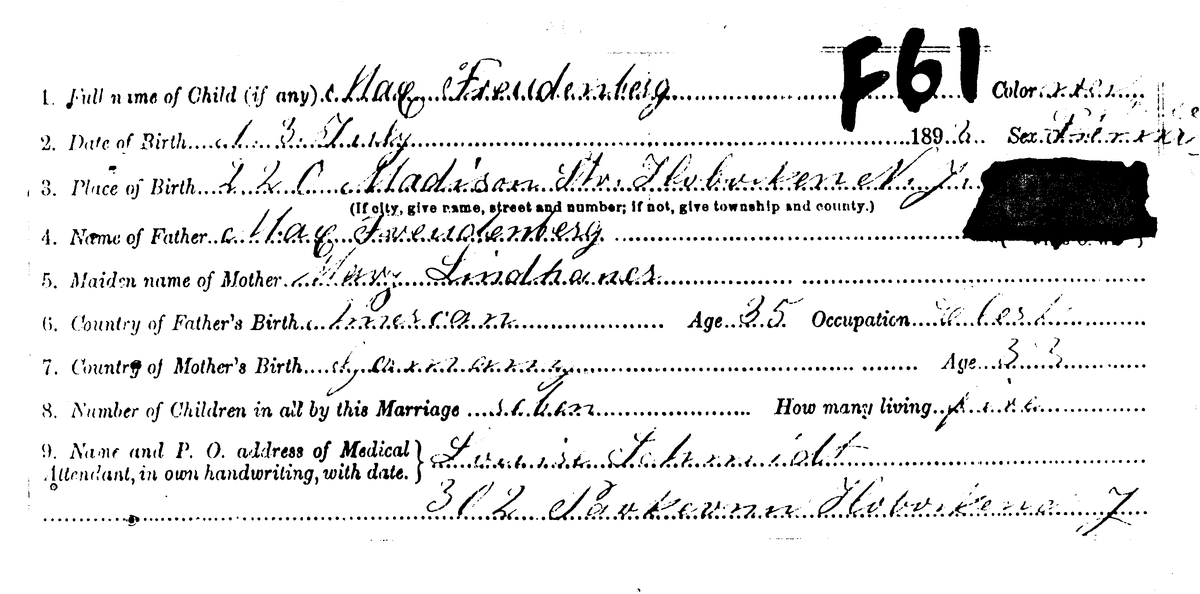 F61
1. Full name of Child (if any) Max Freudenberg Color
2. Date of Birth 13 July 1898 Sex
3. Place of Birth 220 Madison Str. Hoboken N. J.
(If city, give name, street and number; if not, give township and county.)
4. Name of Father Max Freudenberg
5. Maiden name of Mother Mary
6. Country of Father's Birth American Age 35 Occupation Clerk
7. Country of Mother's Birth Garmanny Age 33
8. Number of Children in all by this Marriage seben How many living five
9. Name and P. O. address of Medical Attendant, in own handwriting, with date. } Louise Schmidt
302 Hoboken J